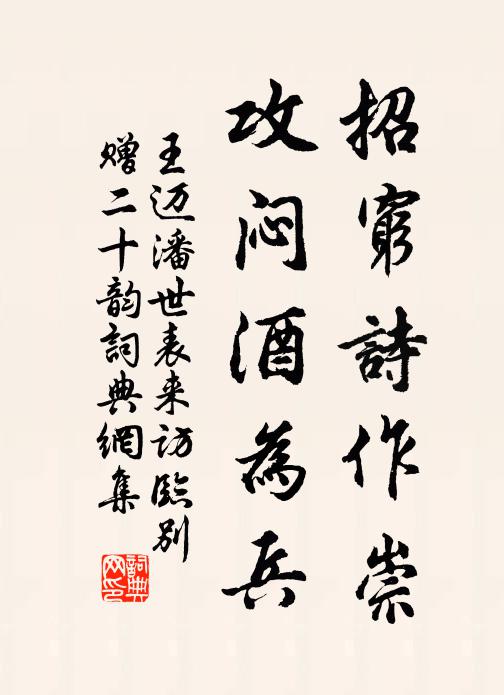 招窮詩作祟
攻闷酒為兵
王迈潘世表来访临别
赠二十韵詞典網集
詞典
网印